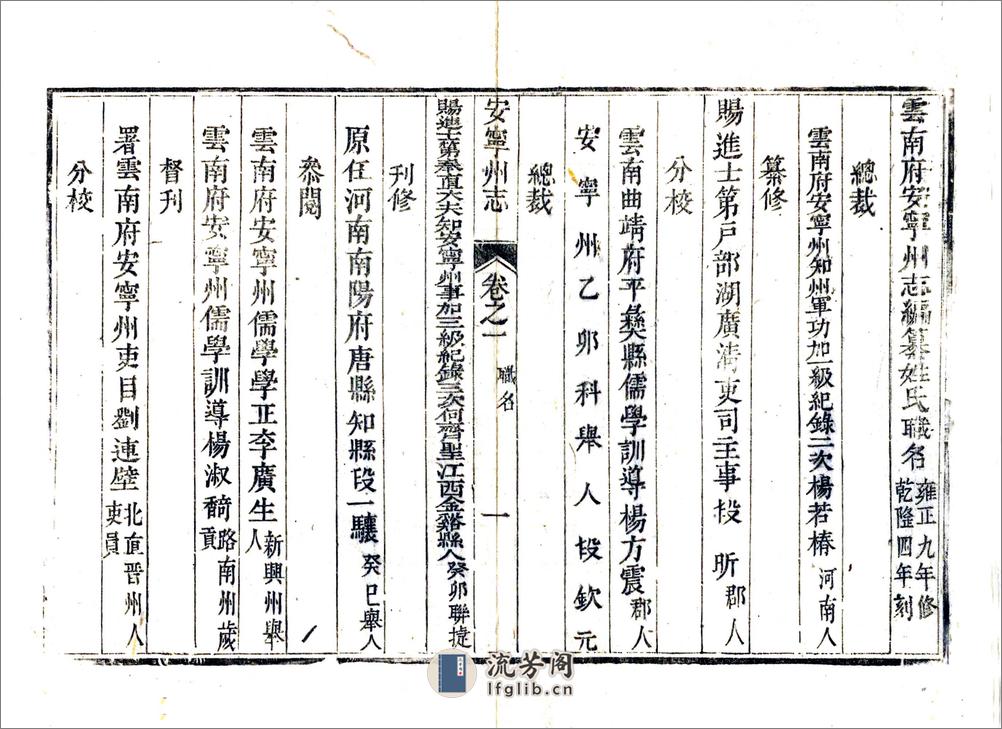 雲南府安寧州志編纂姓氏職名雍正九年修乾隆四年刻
總裁
雲南府安寧州知州軍功加一級紀錄二次楊若椿河南人
纂修
賜進士第戸部湖廣淸吏司主事段昕郡人
分校
雲南曲靖府平彝縣儒學訓導楊方震郡人
安寧州乙卯科舉人段欽元
總裁
安寧州志 卷之一 職名 一
賜進士第奉直大夫知安寧州事加三級紀錄三次何齊聖江西金谿縣人癸卯聯捷
刋修
原任河南南陽府唐縣知縣段一驤癸巳舉人
叅閱
雲南府安寧州儒學學正李廣生新興州舉人
雲南府安寧州儒學訓導楊淑路南州歲貢
督刋
署雲南府安寧州吏目劉連壁北直晋州人吏員
分校
流芳阁
lfglib.cn